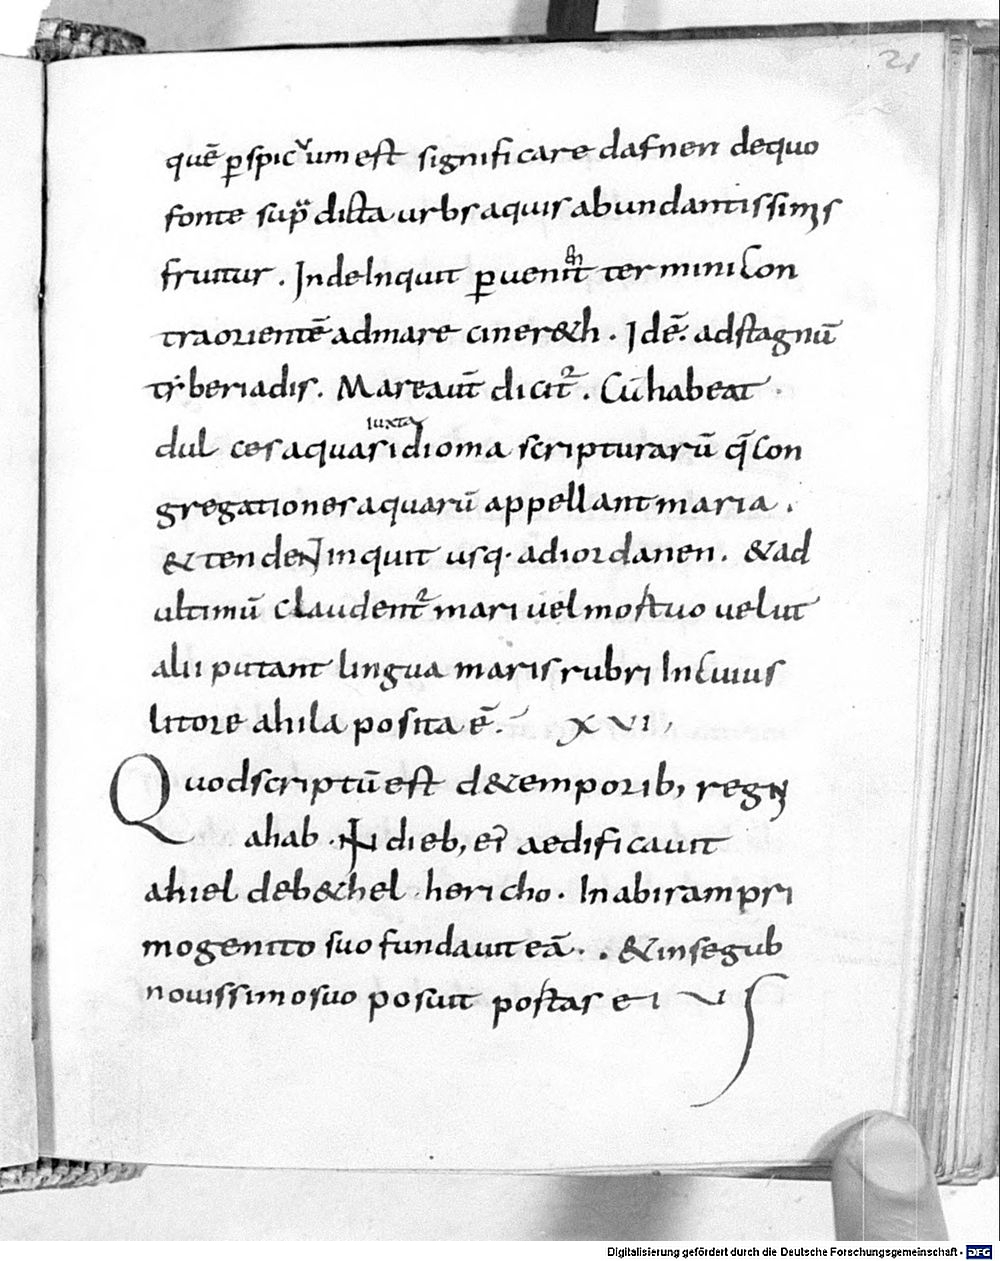 21
quē ꝑspicͮum est significare dafnen dequo
fonte sup̈ dicta urbs aquis abundantissimis
fruitur . Inde Inquit ꝑuenint termini Con
traorientē admare ciner&h . Idē. adstagnū
tẏberiadis . Mareaūt dicit᷑ . Cū habeat .
iuxta
dul ces aquas idioma scripturarū q̄ Con
gregationes aquarū appellant maria .
& tendeN inquit usq· adiordanen . & ad
ultimū claudent᷑ mari uel mortuo uelut
alii putant lingua maris rubri In Cuius
litore ahila posita ē . XVI ,
Quod scriptū est d& emporib, regis
ahab . IN dieb, ei᷑ aedificauit
ahiel deb&hel hericho . In abiram pri
mogenito suo fundauit eā . . & in segub
nouissimo suo posuit postas ei us
Digitalisierung gefördert durch die Deutsche Forschungsgemeinschaft - DFG